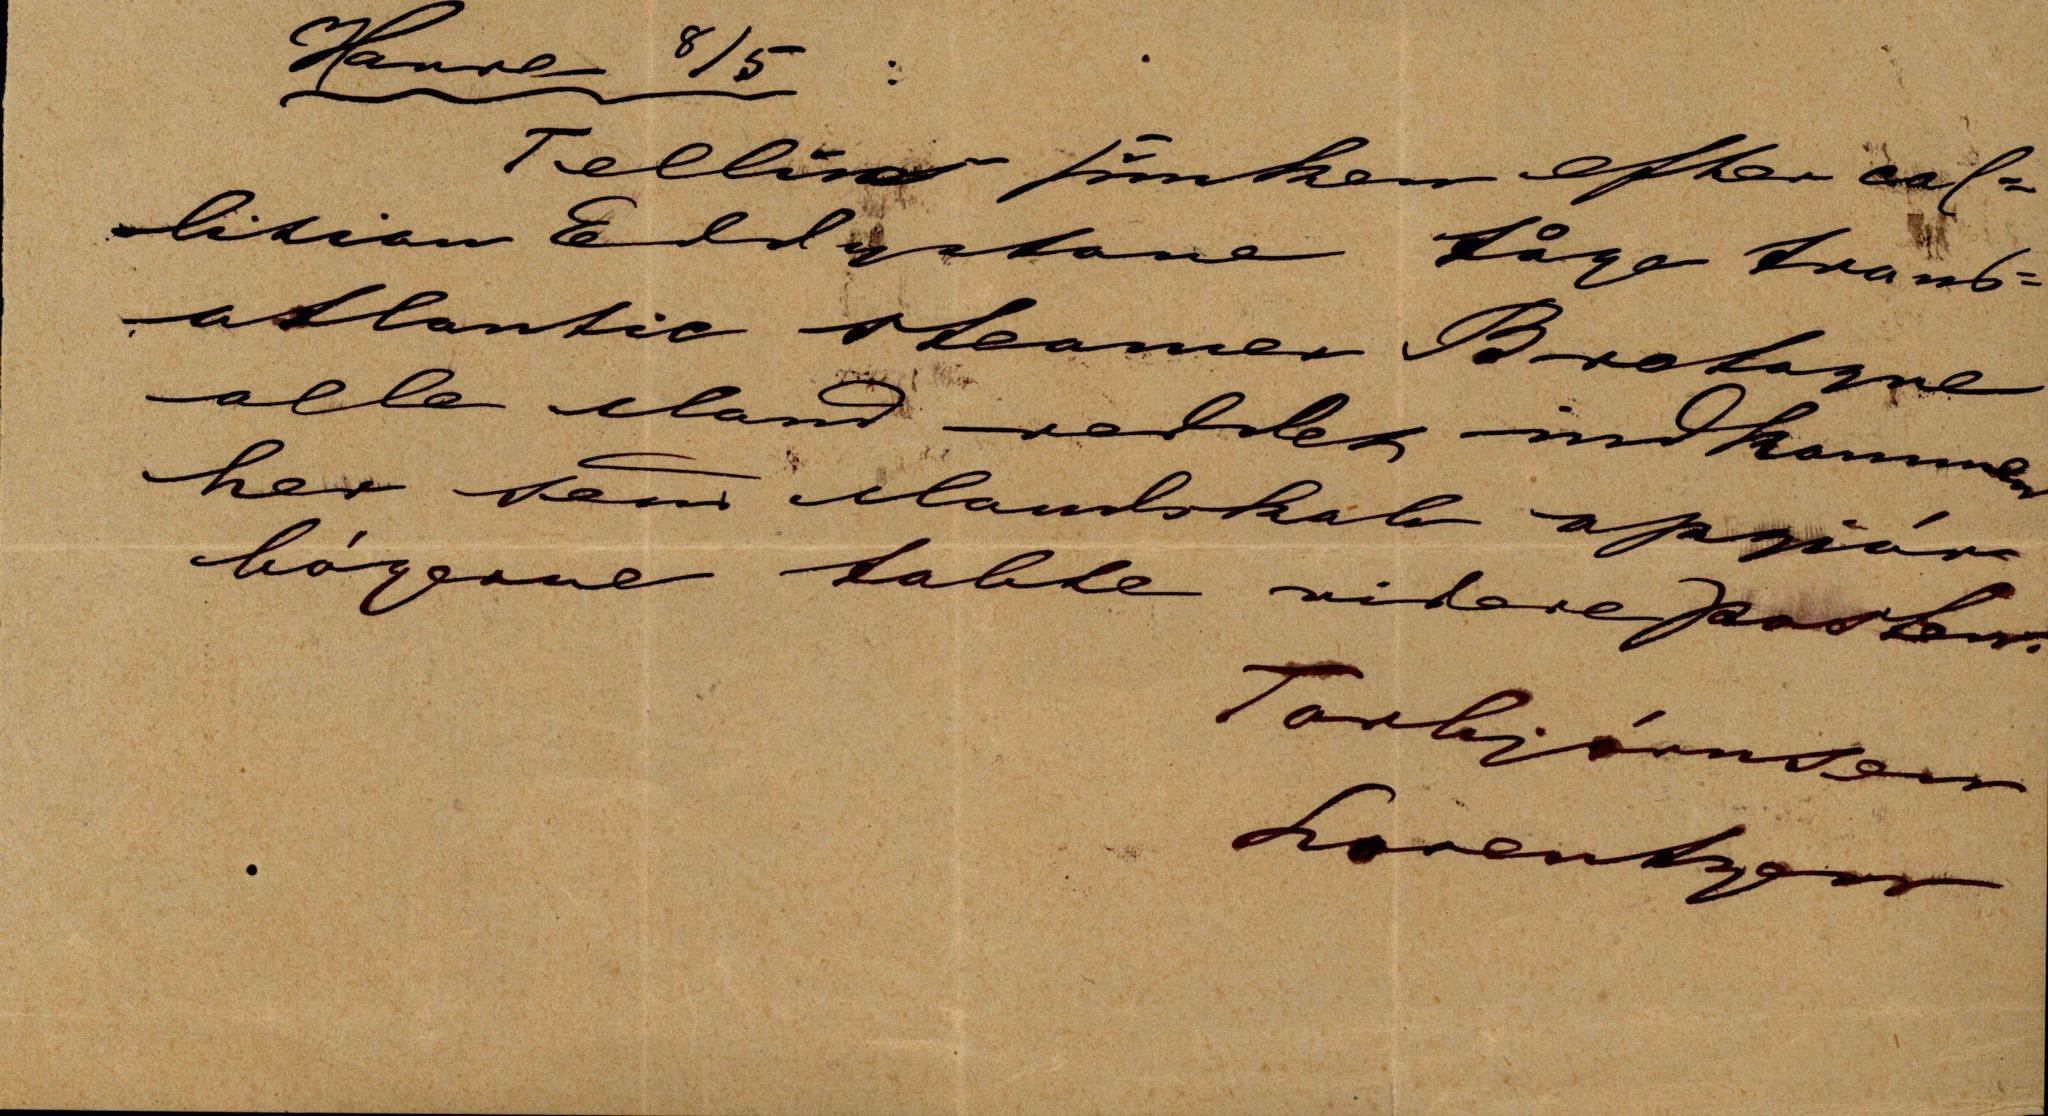 Havre 8/5 :
Tellus sunken efter col=
lision Eddystone tåge trans=
atlantic steamer Bretagne
alle Mand reddet indkommen
her send Mandskab opgiør
bógerne tabte videre posten.
Torbjórnsen
Lorentzen